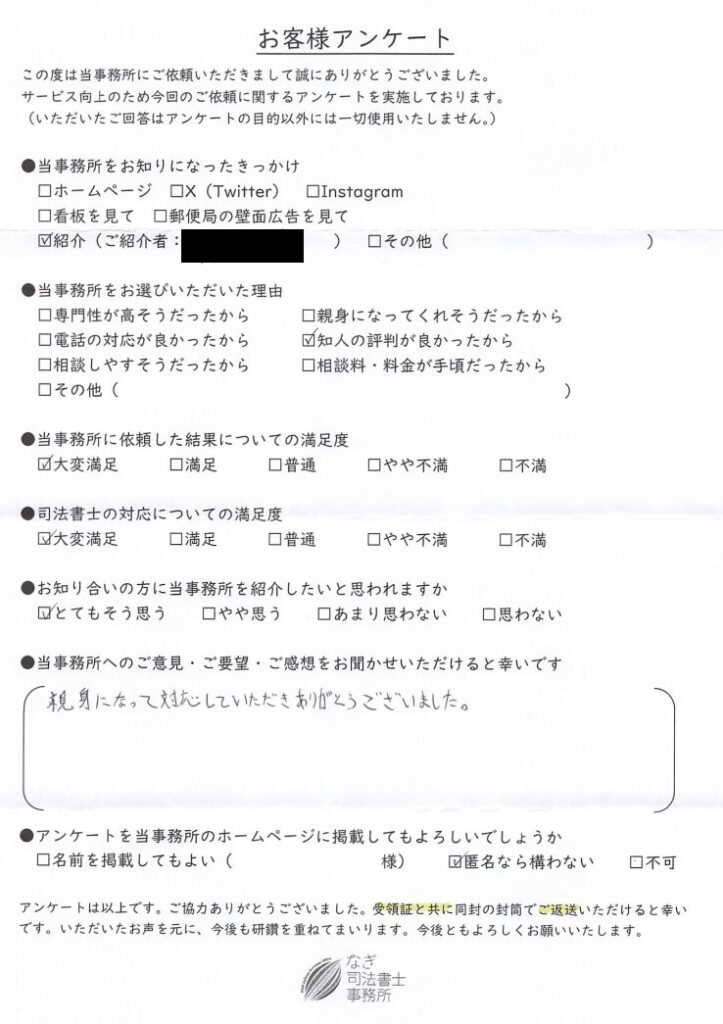 お客様アンケート
この度は当事務所にご依頼いただきまして誠にありがとうございました。
サービス向上のため今回のご依頼に関するアンケートを実施しております。
（いただいたご回答はアンケートの目的以外には一切使用いたしません。）
●当事務所をお知りになったきっかけ
□ホームページ □X（Twitter） □Instagram
□看板を見て □郵便局の壁面広告を見て
☑紹介（ご紹介者： ） □その他（ ）
●当事務所をお選びいただいた理由
□専門性が高そうだったから □親身になってくれそうだったから
□電話の対応が良かったから ☑知人の評判が良かったから
□相談しやすそうだったから □相談料・料金が手頃だったから
□その他（ ）
●当事務所に依頼した結果についての満足度
☑大変満足 □満足 □普通 □やや不満 □不満
●司法書士の対応についての満足度
☑大変満足 □満足 □普通 □やや不満 □不満
●お知り合いの方に当事務所を紹介したいと思われますか
☑とてもそう思う □やや思う □あまり思わない □思わない
●当事務所へのご意見・ご要望・ご感想をお聞かせいただけると幸いです
親身になって対応していただきありがとうございました。
●アンケートを当事務所のホームページに掲載してもよろしいでしょうか
□名前を掲載してもよい（ 様） ☑匿名なら構わない □不可
アンケートは以上です。ご協力ありがとうございました。受領証と共に同封の封筒でご返送いただけると幸い
です。いただいたお声を元に、今後も研鑽を重ねてまいります。今後ともよろしくお願いいたします。
なぎ
司法書士
事務所